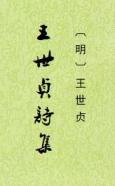 王世貞詩集
〔明〕王世贞